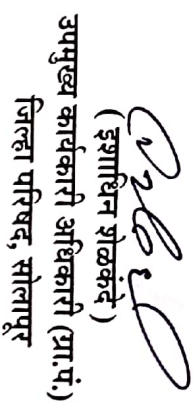 ( इशाधिन शेळकंदे )
उपमुख्य कार्यकारी अधिकारी (प्रा.पं.)
जिल्हा परिषद, सोलापूर